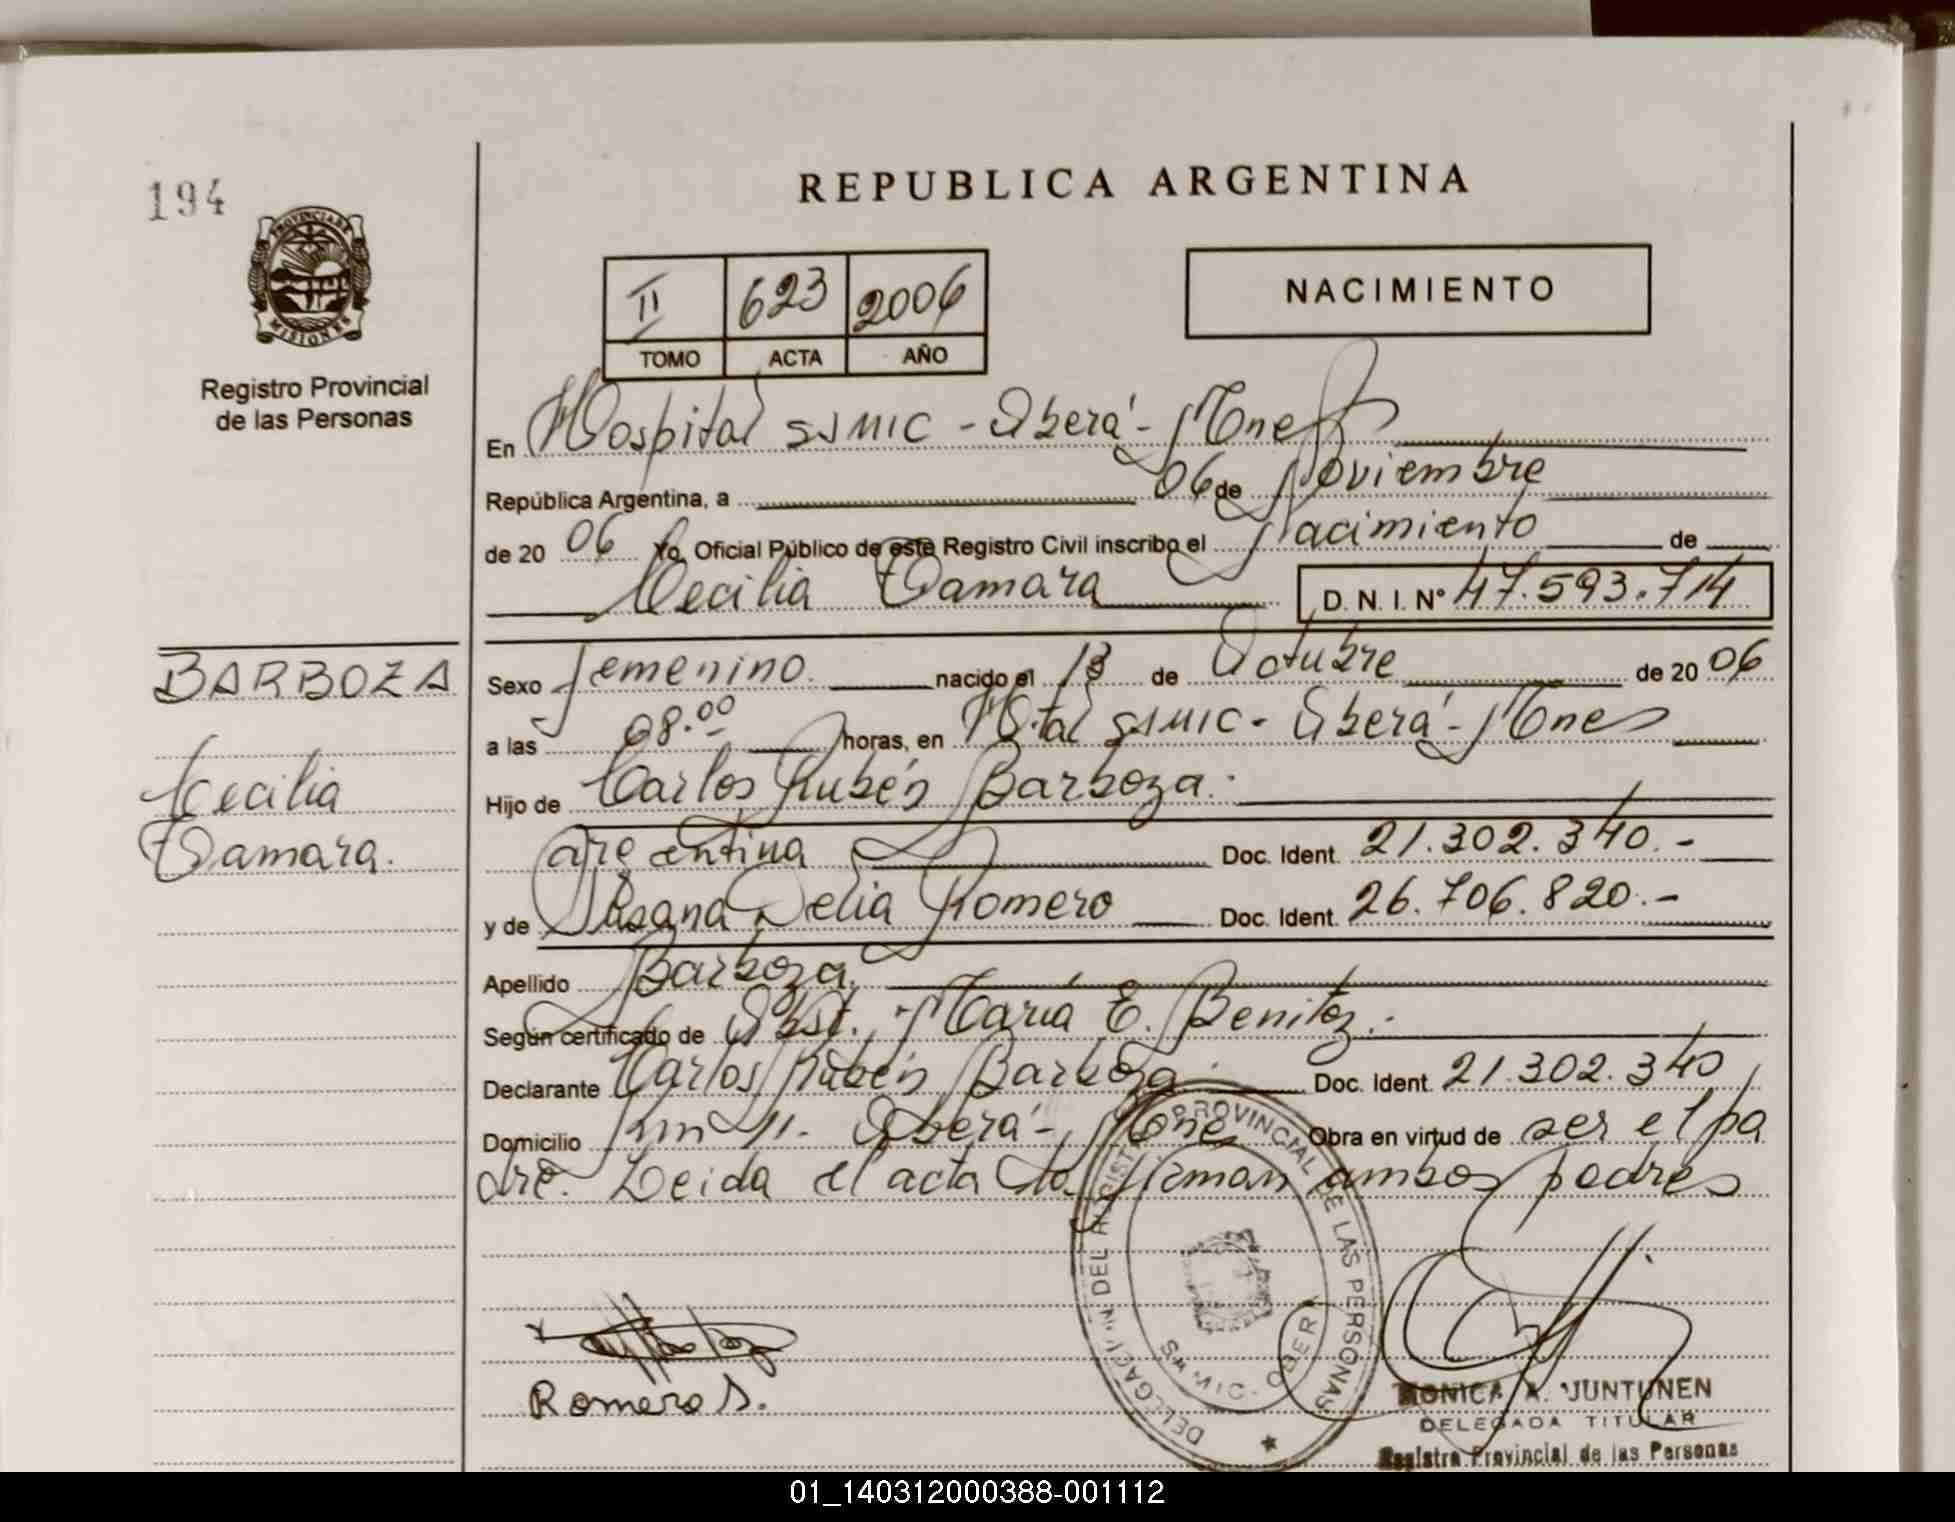 194
REPUBLICA ARGENTINA
PROVINCIA DE
MISIONES
Registro Provincial
de las Personas
II 623 2006
TOMO ACTA AÑO
NACIMIENTO
En Hospital SAMIC - Oberá - Mnes
República Argentina, a 06 de Noviembre
de 20 06 Yo, Oficial Público de este Registro Civil inscribo el Nacimiento de
Cecilia Tamara D. N. I. Nº 47.593.714
BARBOZA
Cecilia
Tamara.
Sexo femenino. nacido el de Octubre de 20 06
a las 08.00 horas, en H.tal SAMIC - Oberá - Mnes
Hijo de Carlos Rubén Barboza.
argentina Doc. Ident. 21.302.340.-
y de Susana Delia Romero Doc. Ident. 26.706.820.-
Apellido Barboza.
Según certificado de Obst. María E. Benitez.-
Declarante Carlos Rubén Barboza Doc. Ident. 21.302.340
Domicilio Km 11- Oberá - Mnes Obra en virtud de ser el pa
dre. Leida el acta la firman ambos padres
DELEGACION DEL REGISTRO PROVINCIAL DE LAS PERSONAS
SAMIC - OBERA
Romero S.
MONICA A. JUNTUNEN
DELEGADA TITULAR
Registro Provincial de las Personas
01_140312000388-001112